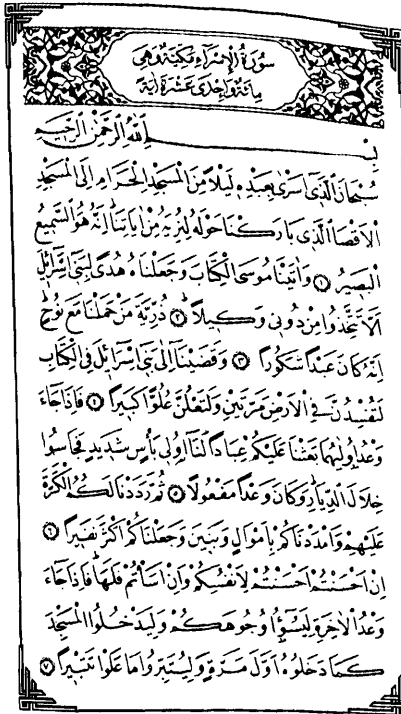 سُورَةُ الْاِسْرَٓاءِ مَكِّيَّةٌ وَهِيَ
مِائَةٌ وَاِحْدٰى عَشْرَةَ اٰيَةً
بِسْمِ اللّٰهِ الرَّحْمٰنِ الرَّحِيمِ
سُبْحَانَ الَّذٖٓي اَسْرٰى بِعَبْدِهٖ لَيْلًا مِنَ الْمَسْجِدِ الْحَرَامِ اِلَى الْمَسْجِدِ
الْاَقْصَا الَّذٖي بَارَكْنَا حَوْلَهُ لِنُرِيَهُ مِنْ اٰيَاتِنَاۜ اِنَّهُ هُوَ السَّمٖيعُ
الْبَصٖيرُ ﴿١﴾ وَاٰتَيْنَا مُوسَى الْكِتَابَ وَجَعَلْنَاهُ هُدًى لِبَنٖٓي اِسْرَٓائٖلَ
اَلَّا تَتَّخِذُوا مِنْ دُونٖي وَكٖيلًاۜ ﴿٢﴾ ذُرِّيَّةَ مَنْ حَمَلْنَا مَعَ نُوحٍۜ
اِنَّهُ كَانَ عَبْدًا شَكُورًا ﴿٣﴾ وَقَضَيْنَٓا اِلٰى بَنٖٓي اِسْرَٓائٖلَ فِي الْكِتَابِ
لَتُفْسِدُنَّ فِي الْاَرْضِ مَرَّتَيْنِ وَلَتَعْلُنَّ عُلُوًّا كَبٖيرًا ﴿٤﴾ فَاِذَا جَٓاءَ
وَعْدُ اُولٰيهُمَا بَعَثْنَا عَلَيْكُمْ عِبَادًا لَنَٓا اُولٖي بَأْسٍ شَدٖيدٍ فَجَاسُوا
خِلَالَ الدِّيَارِۜ وَكَانَ وَعْدًا مَفْعُولًا ﴿٥﴾ ثُمَّ رَدَدْنَا لَكُمُ الْكَرَّةَ
عَلَيْهِمْ وَاَمْدَدْنَاكُمْ بِاَمْوَالٍ وَبَنٖينَ وَجَعَلْنَاكُمْ اَكْثَرَ نَفٖيرًا ﴿٦﴾
اِنْ اَحْسَنْتُمْ اَحْسَنْتُمْ لِاَنْفُسِكُمْ وَاِنْ اَسَأْتُمْ فَلَهَاۜ فَاِذَا جَٓاءَ
وَعْدُ الْاٰخِرَةِ لِيَسُٓؤُ۫ا وُجُوهَكُمْ وَلِيَدْخُلُوا الْمَسْجِدَ
كَمَا دَخَلُوهُ اَوَّلَ مَرَّةٍ وَلِيُتَبِّرُوا مَا عَلَوْا تَتْبٖيرًا ﴿٧﴾